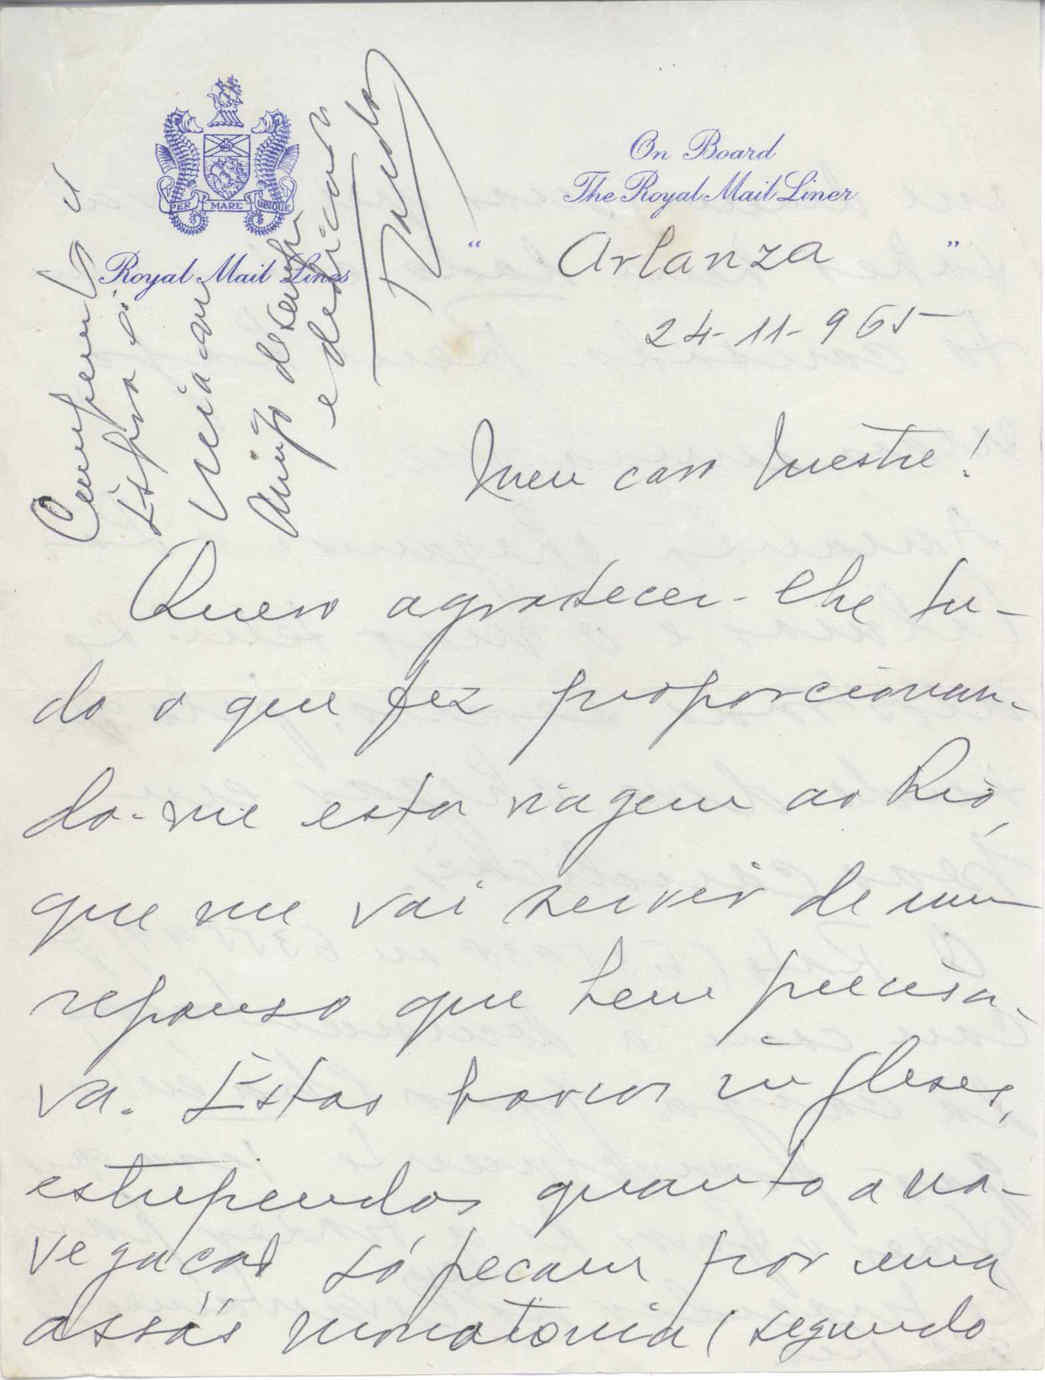 PER MARE UBIQUE
Royal Mail Lines
On Board
The Royal Mail Liner
" Arlanza "
24-11-965
Meu caro Mestre!
Quero agradecer-lhe tu-
do o que fez proporcionan-
do-me esta viagem ao Rio,
que me vai servir de um
repouso que bem precisa-
va. Estes barcos ingleses,
estupendos quanto a na-
vegação só pecam por uma
assás monotonia (segundo
Cumprimentos a
Espôsa e
amigo
e dedicado